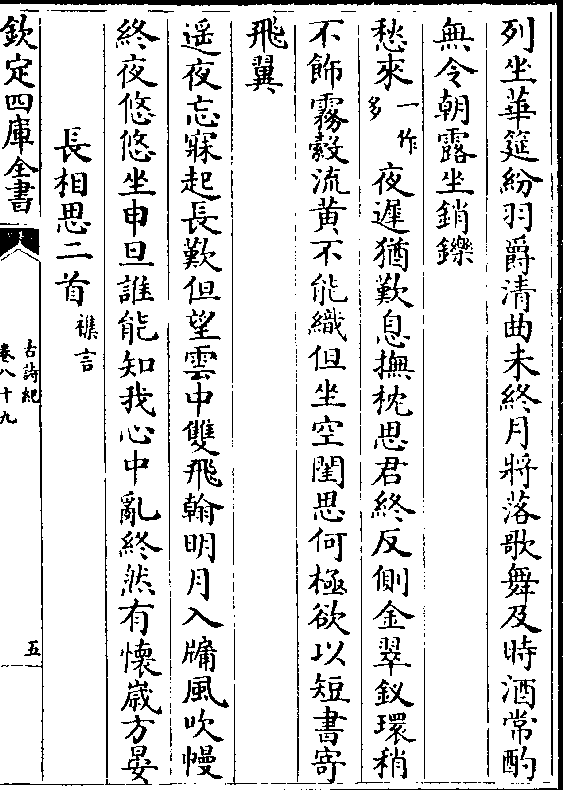 列坐華筵紛羽爵清曲未終月將落歌舞及時酒常酌
無令朝露坐銷鑠
愁來一作多夜遲猶歎息撫枕思君終反側金翠釵環稍
不飾霧縠流黄不能織但坐空閨思何極欲以短書寄
飛翼
遥夜忘寐起長歎但望雲中雙飛翰明月入牗風吹幔
終夜悠悠坐申旦誰能知我心中亂終然有懷歳方晏
長相思二首襍言
欽定四庫全書
古詩紀
卷八十九
五